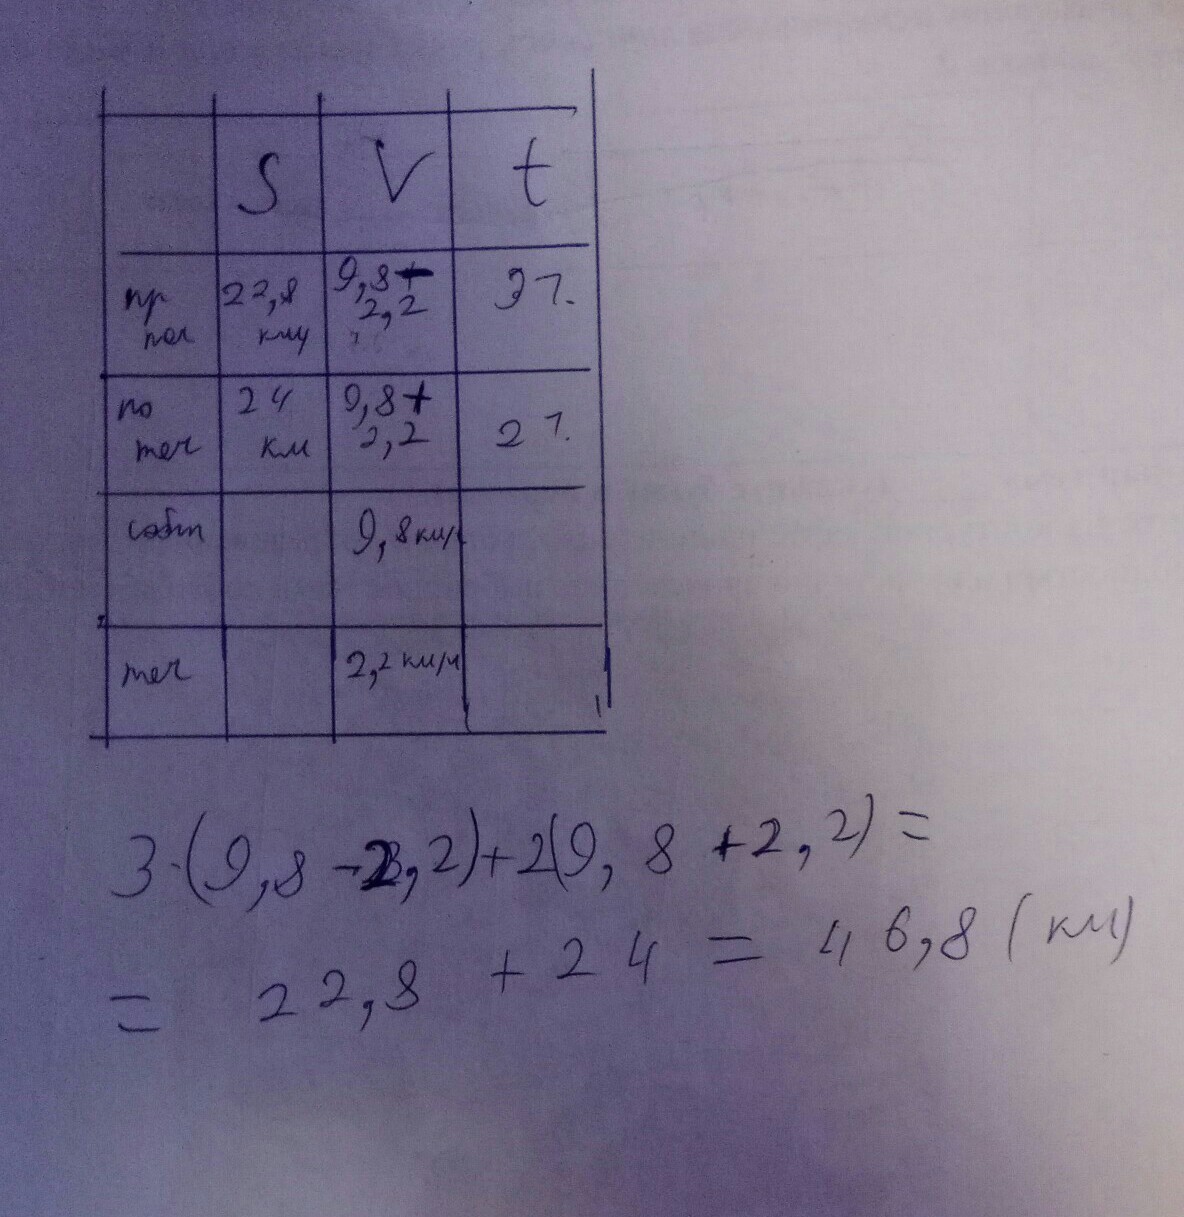 S V t
пр 22,8 9,8+ 3 ч.
теч км/ч 2,2
по 24 9,8+ 2 ч.
теч км 2,2
собств 9,8 км/ч
теч 2,2 км/ч
3·(9,8-2,2)+2(9,8+2,2)=
= 22,8 + 24 = 46,8 (км)